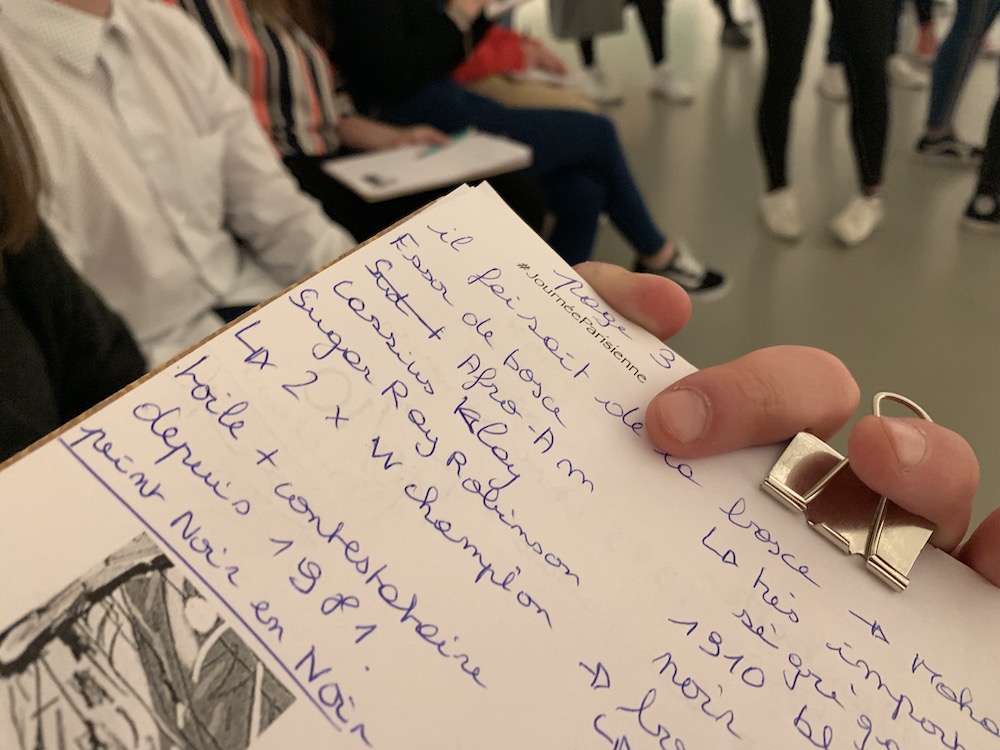 Page 3
#JournéeParisienne
il faisait de la boxe → Moha
Essor de boxe
+ Afro-Am
Cassius Klay
Sugar Ray Robinson
↳ 2 x W champion
toile + contestataire
depuis 1981.
peint Noir en Noir
↳ très import
ségréga
1910 be
noir
→